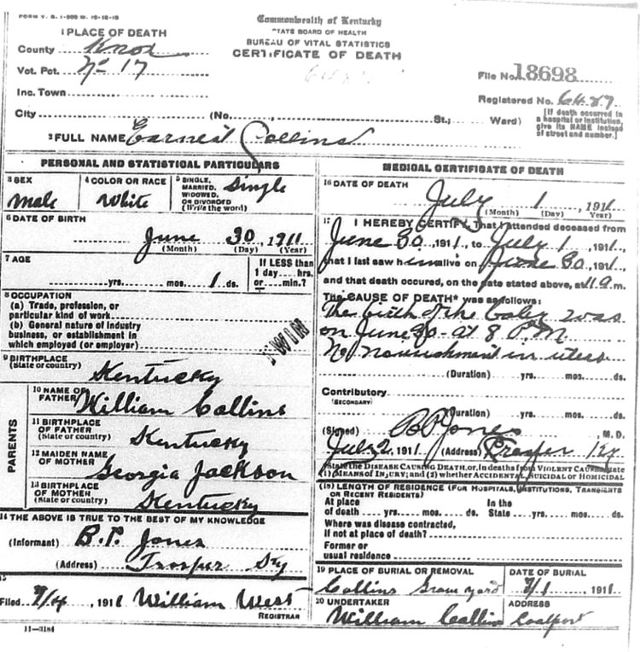 FORM V. S. 1-
Commonwealth of Kentucky
STATE BOARD OF HEALTH
BUREAU OF VITAL STATISTICS
CERTIFICATE OF DEATH
1 PLACE OF DEATH
County Knox
Vot. Pct. No 17
Inc. Town
City (No., St.; Ward)
File No. 18698
Registered No.
[If death occurred in a hospital or institution, give its NAME instead of street and number.]
2 FULL NAME Earnest Collins
PERSONAL AND STATISTICAL PARTICULARS
3 SEX
Male
4 COLOR OR RACE
White
5 SINGLE, MARRIED, WIDOWED, OR DIVORCED (Write the word)
Single
6 DATE OF BIRTH
June 30 1911
(Month) (Day) (Year)
7 AGE
yrs. mos. 1 ds.
If LESS than 1 day hrs. or min.?
8 OCCUPATION
(a) Trade, profession, or particular kind of work
(b) General nature of industry business, or establishment in which employed (or employer)
TWIN
9 BIRTHPLACE
(State or country) Kentucky
PARENTS
10 NAME OF FATHER William Collins
11 BIRTHPLACE OF FATHER
(State or country) Kentucky
12 MAIDEN NAME OF MOTHER Georgia Jackson
13 BIRTHPLACE OF MOTHER
(State or country) Kentucky
14 THE ABOVE IS TRUE TO THE BEST OF MY KNOWLEDGE
(Informant) B. P. Jones
(Address) Trosper Ky
15
Filed 7/4, 1911 William West
REGISTRAR
11-3184
MEDICAL CERTIFICATE OF DEATH
16 DATE OF DEATH
July 1, 1911
(Month) (Day) (Year)
17 I HEREBY CERTIFY, That I attended deceased from
June 30, 1911, to July 1, 1911,
that I last saw him alive on June 30, 1911,
and that death occurred, on the date stated above, at 11 a m.
The CAUSE OF DEATH* was as follows:
The birth of the baby was
on June 30 at 8 P.M
No nourishment in utero
(Duration) yrs. mos. ds.
Contributory
(SECONDARY)
(Duration) yrs. mos. ds.
(Signed) B P Jones M. D.
July 2, 1911 (Address) Trosper Ky
*State the DISEASE CAUSING DEATH, or, in deaths from VIOLENT CAUSES, state
(1) MEANS OF INJURY; and (2) whether ACCIDENTAL, SUICIDAL or HOMICIDAL.
(18) LENGTH OF RESIDENCE (FOR HOSPITALS, INSTITUTIONS, TRANSIENTS OR RECENT RESIDENTS)
At place of death yrs. mos. ds. In the State yrs. mos. ds.
Where was disease contracted,
if not at place of death?
Former or
usual residence
19 PLACE OF BURIAL OR REMOVAL
Collins Graveyard
DATE OF BURIAL
7/1, 1911
20 UNDERTAKER
William Collins
ADDRESS
Coalport